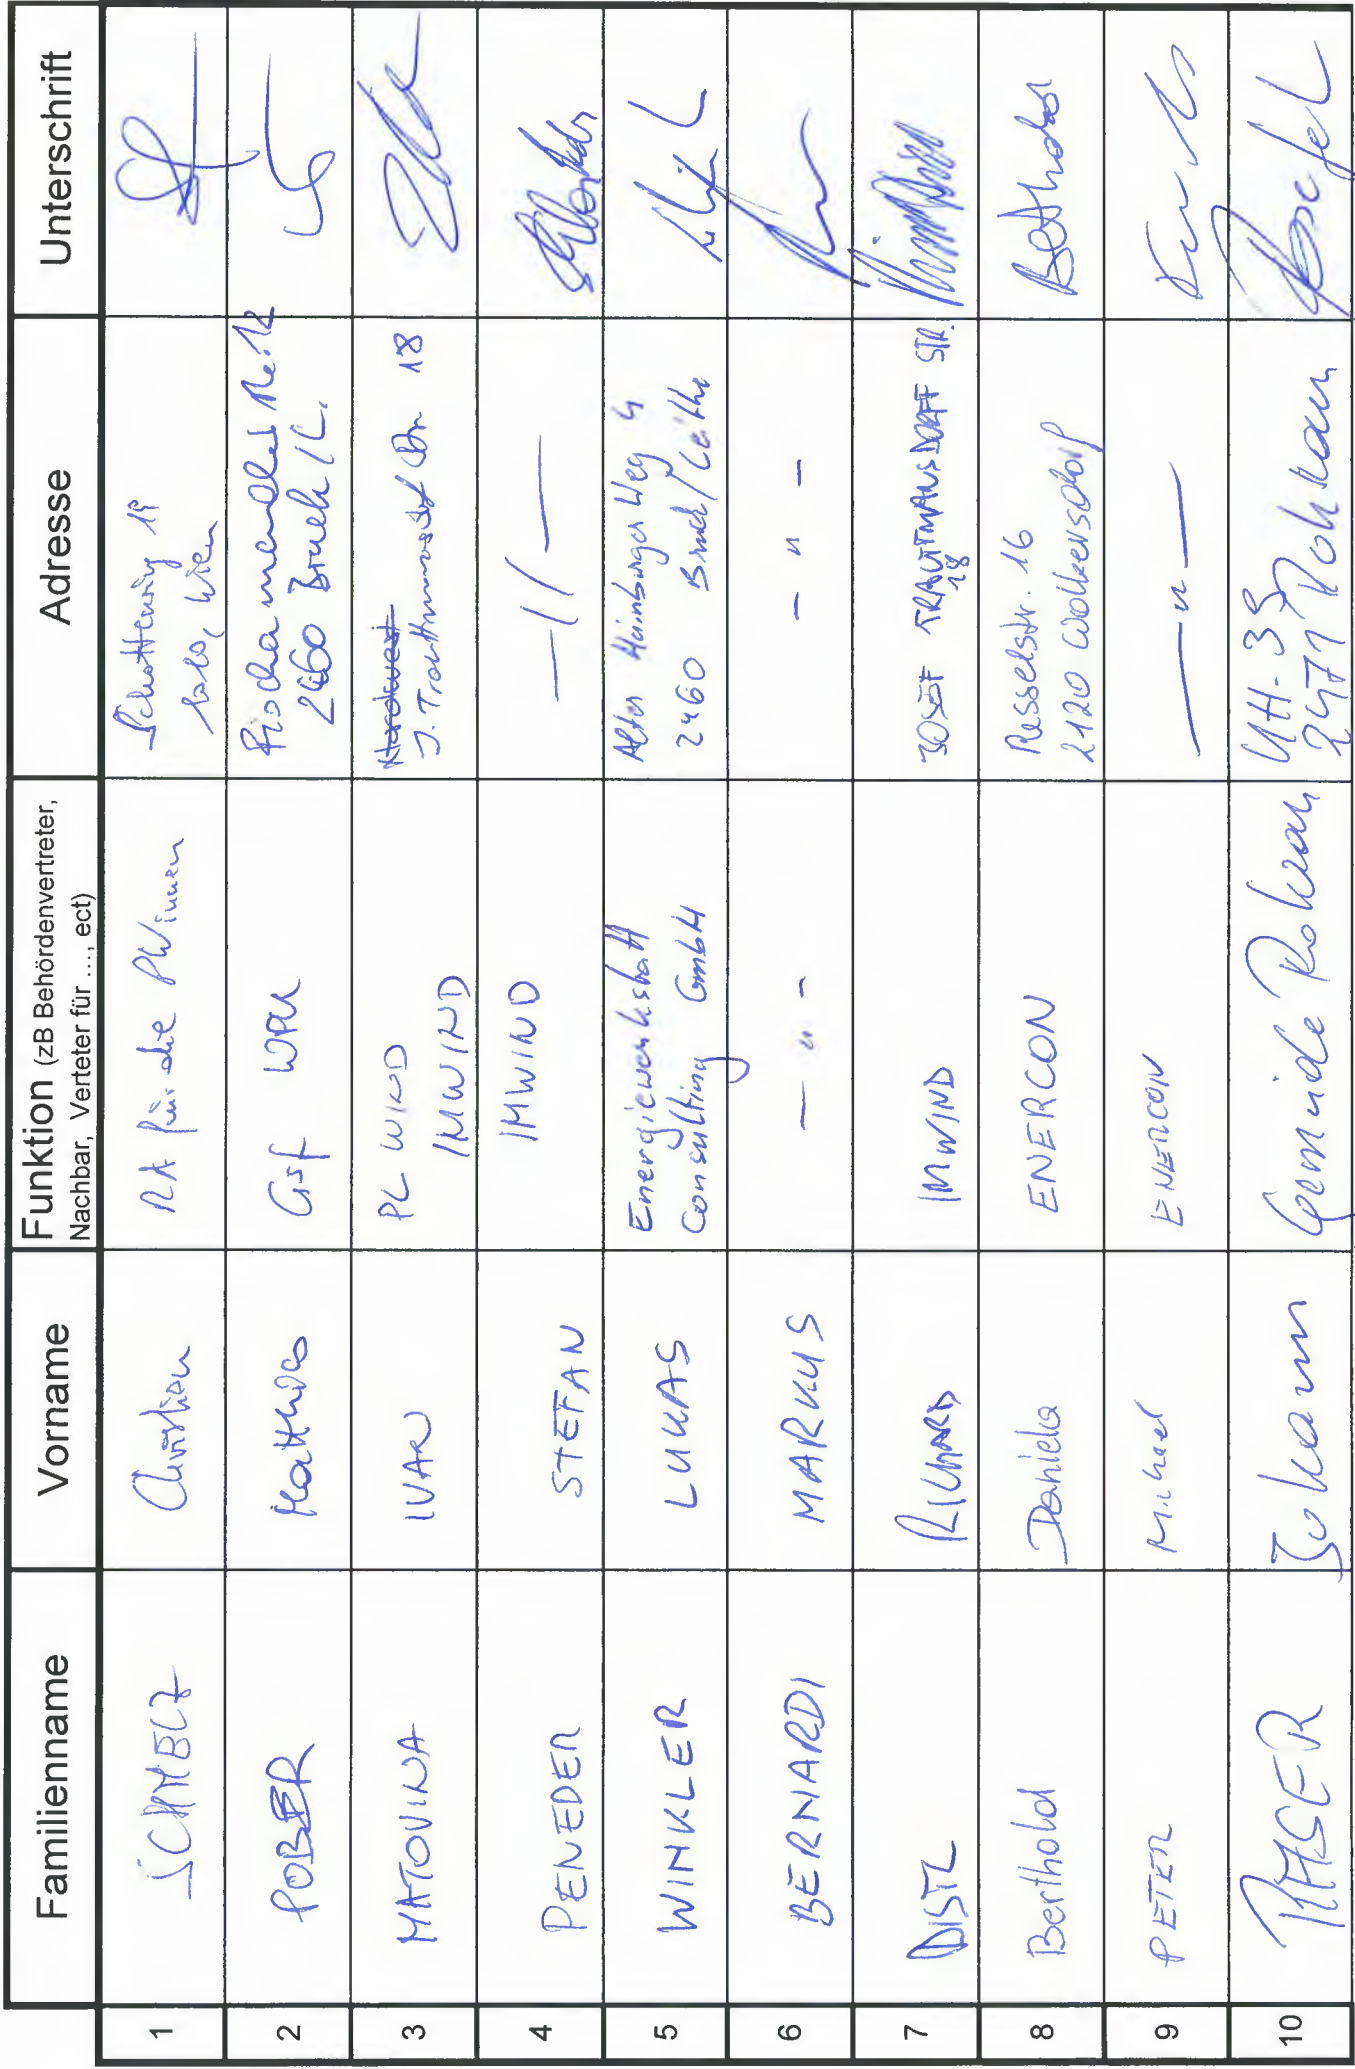 Familienname
Vorname
Funktion (zB Behördenvertreter,
Nachbar, Verteter für ..., ect)
Adresse
Unterschrift
1
SCHMELZ
Christian
RA für die PWinnen
Schottenring 19
1010, Wien
2
POBER
Matthias
Gsf
Fischamender
2460 Bruck/L.
3
MATOVINA
IVAN
PL WIND
IMWIND
J. Trauttmansdorf Str 18
4
PENEDER
STEFAN
IMWIND
—//—
5
WINKLER
LUKAS
Energiewerkstatt
Consulting GmbH
Alter Hainburger Weg 4
2460 Bruck/Leitha
6
BERNARDI
MARKUS
— " -
- " -
7
DISTL
RICHARD
IMWIND
JOSEF TRAUTTMANSDORFF STR.
18
8
Berthold
Daniela
ENERCON
Resselstr. 16
2120 Wolkersdorf
Berthold
9
PETER
Michael
ENERCON
—"—
10
RASER
Johann
Gemeinde Rohrau
2471 Rohrau